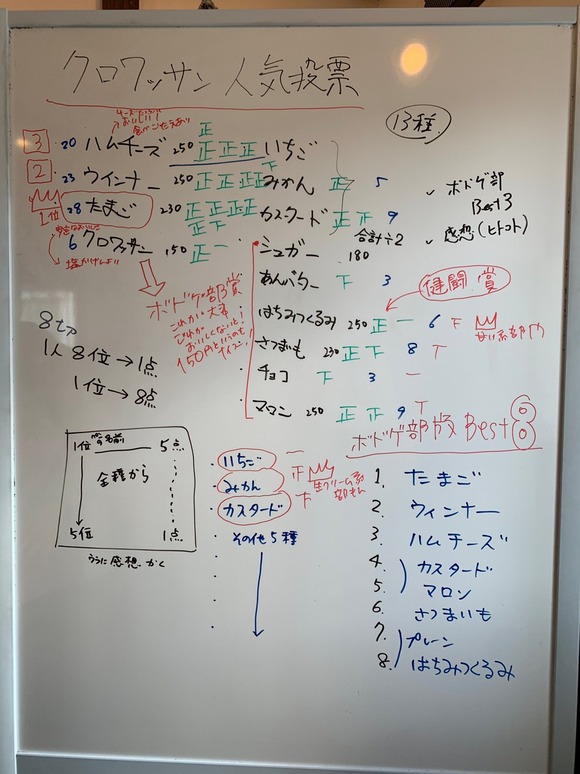 クロワッサン 人気投票
13種
おいしい!
3 20 ハムチーズ 250 正正正
2 23 ウインナー 250 正正正正
1位 28 たまご 230 正正正正正下
6 クロワッサン 150 正一
塩かげんよい
いちご
みかん 正 5
カスタード 正下 9
合計÷2
シュガー 180
あんバター 下 3
はちみつくるみ 250 正一 6 下
さつまいも 230 正下 8 丅
チョコ 下 3 一
マロン 250 正下 9 丅
ボドゲ部
Best3
感想(ヒトコト)
健闘賞
甘い系部門
ボドゲの部賞
これが大事
これが
おいしくないと!
150円というのも
ナイス!
8セブ
1人 8位→1点
1位→8点
1位 名前 5点
全種から
5位 1点
うらに感想かく
いちご 正
みかん 下
カスタード
生クリーム系
部もん
その他5種
ボドゲ部版 Best 8
1. たまご
2. ウィンナー
3. ハムチーズ
4. カスタード
5. マロン
6. さつまいも
7. プレーン
8. はちみつくるみ